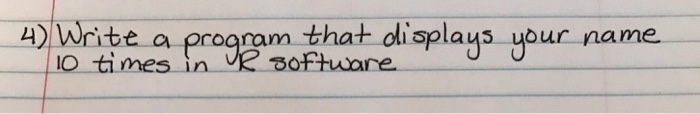 4) Write a program that displays your name
10 times in R software